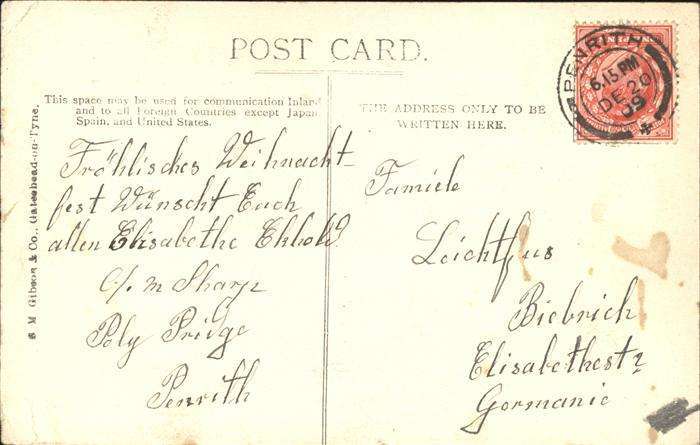 POST CARD.
This space may be used for communication Inland
and to all Foreign Countries except Japan
Spain, and United States.
THE ADDRESS ONLY TO BE
WRITTEN HERE.
S M Gibson & Co., Gateshead-on-Tyne.
PENRITH
6.15 PM
DE 20
09
Fröhlisches Weihnacht
fest Wünscht Euch
allen Elisabethe Ekhold
c/. m Sharp
Poly Pridge
Penrith
Famiele
Leichtfus
Biebrich
Elisabethestr
Germanie